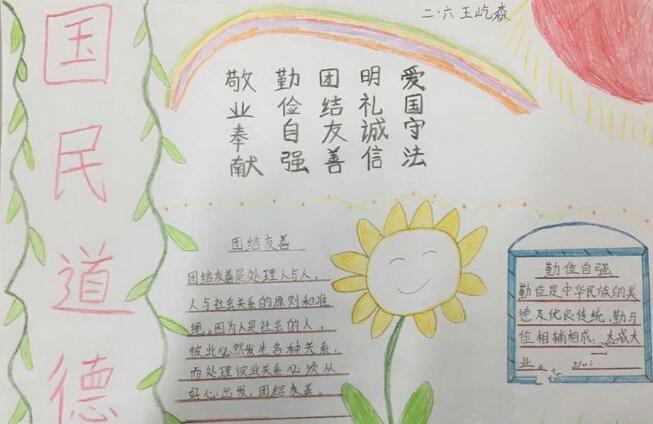 国民道德
二·六 王屹森
爱国守法
明礼诚信
团结友善
勤俭自强
敬业奉献
团结友善
团结友善是处理人与人,
人与社会关系的原则和准
绳,因为人是社会的人,
彼此必然发生各种关系,
而处理彼此关系必须从
好心出发,团结友善。
勤俭自强
勤俭是中华民族的美
德及优良传统,勤与
俭相辅相成,
成大
业